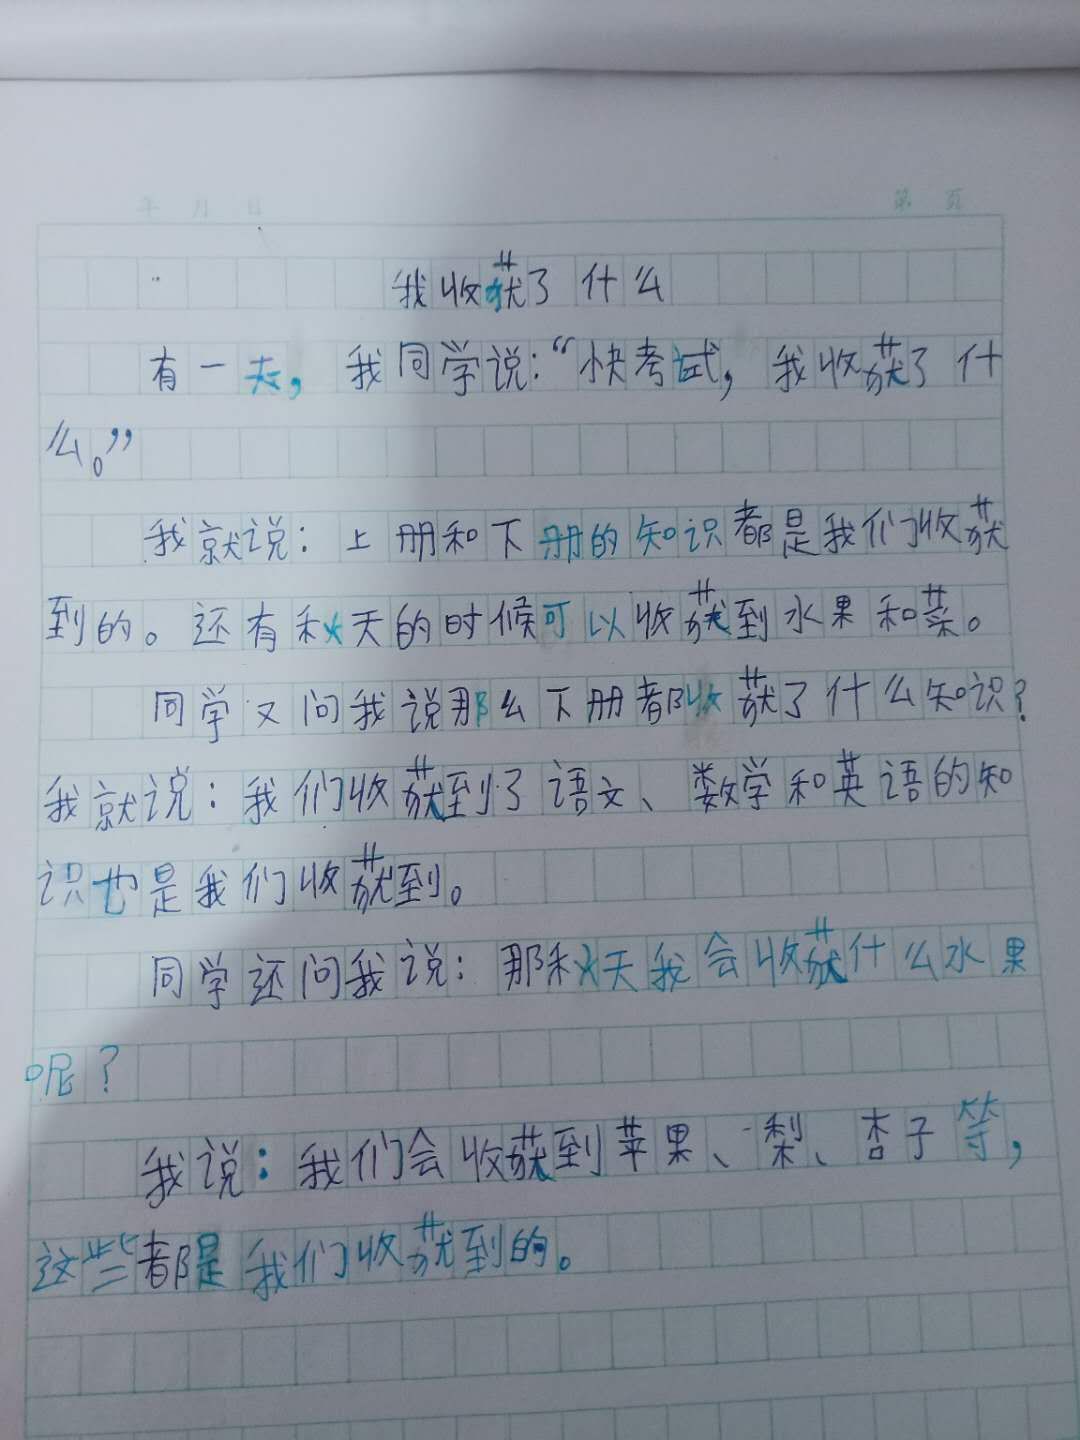 年 月 日 第 页
我收获了什么
有一天，我同学说：“快考试，我收获了什
么。”
我就说：上册和下册的知识都是我们收获
到的。还有秋天的时候可以收获到水果和菜。
同学又问我说那么下册都收获了什么知识？
我就说：我们收获到了语文、数学和英语的知
识也是我们收获到。
同学还问我说：那秋天我会收获什么水果
呢？
我说：我们会收获到苹果、梨、杏子等，
这些都是我们收获到的。